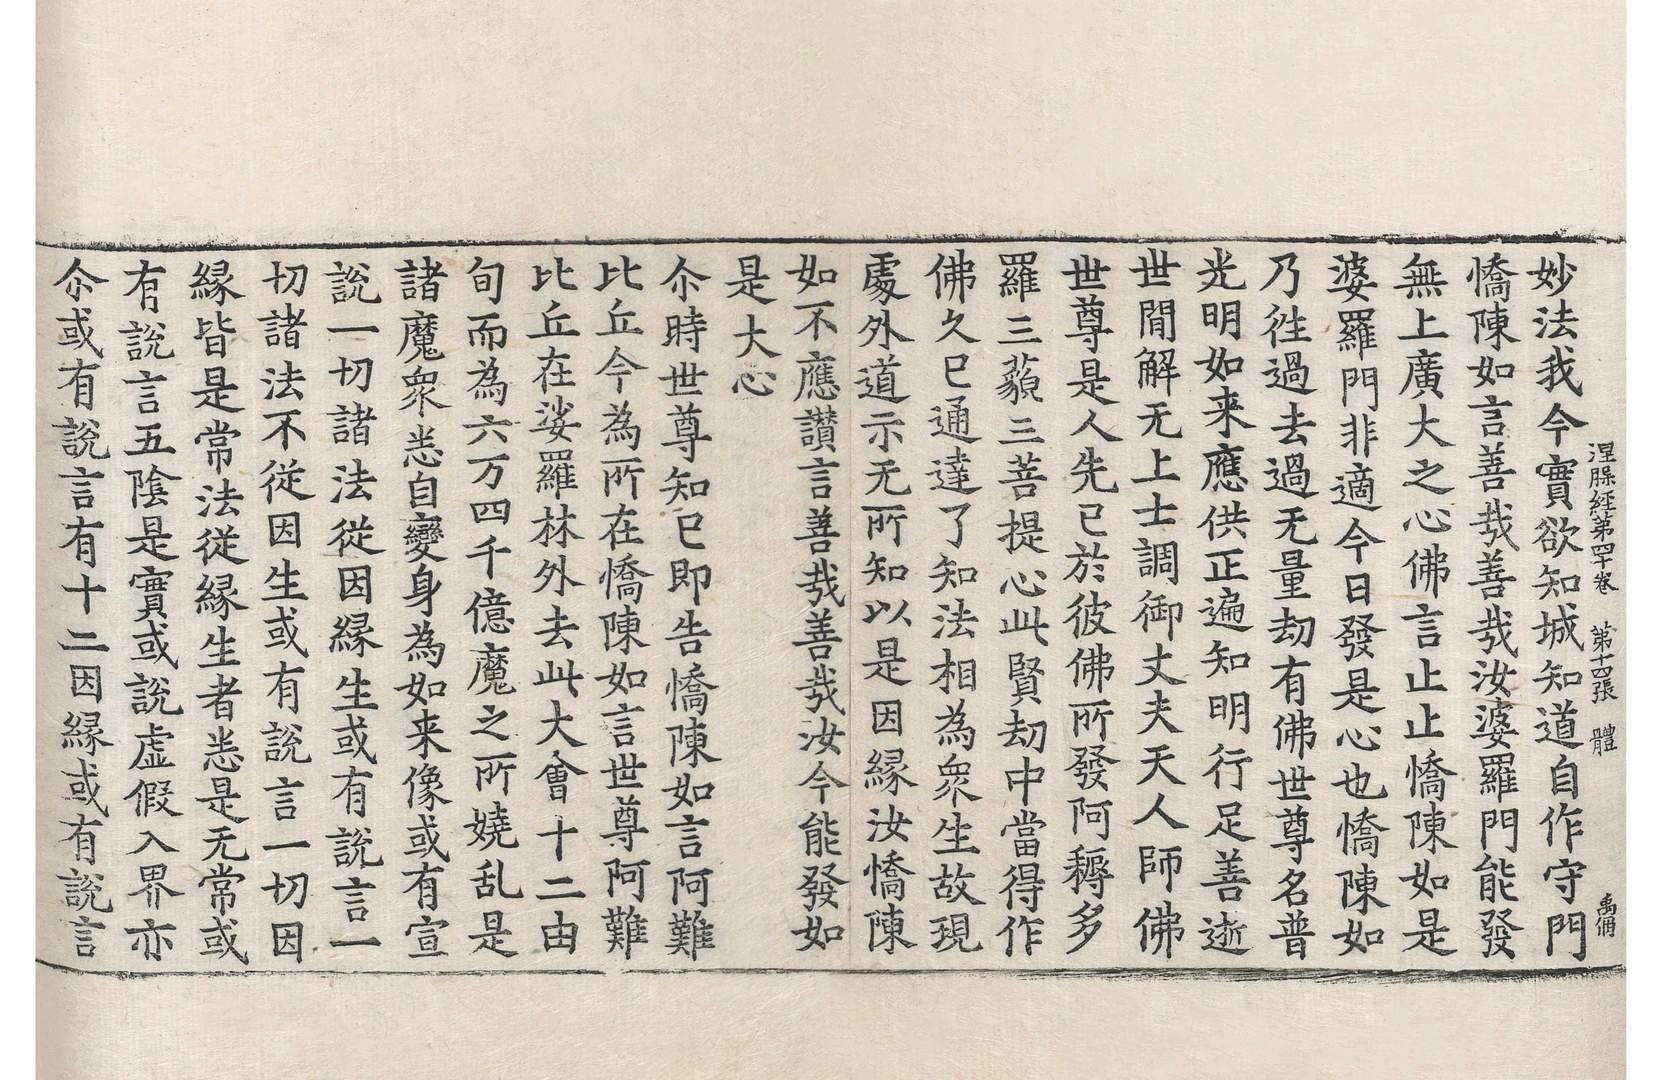 妙法我今實欲知城知道自作守門
涅縣経第四十卷 第十四張 體 禹俻
憍陳如言善㢤善㢤汝婆羅門能發
無上廣大之心佛言止止憍陳如是
婆羅門非適今日發是心也憍陳如
乃徃過去過无量劫有佛世尊名普
光明如来應供正遍知明行足善逝
世閒解无上士調御丈夫天人師佛
世尊是人先已於彼佛所發阿耨多
羅三藐三菩提心此賢劫中當得作
佛久已通達了知法相為衆生故現
處外道示无所知以是因縁汝憍陳
如不應讃言善㢤善㢤汝今能發如
是大心
尒時世尊知已即告憍陳如言阿難
比丘今為所在憍陳如言世尊阿難
比丘在娑羅林外去此大會十二由
旬而為六万四千億魔之所嬈乱是
諸魔衆悉自變身為如来像或有宣
說一切諸法從因縁生或有說言一
切諸法不從因生或有說言一切因
縁皆是常法從縁生者悉是无常或
有說言五陰是實或說虛假入界亦
尒或有說言有十二因縁或有說言